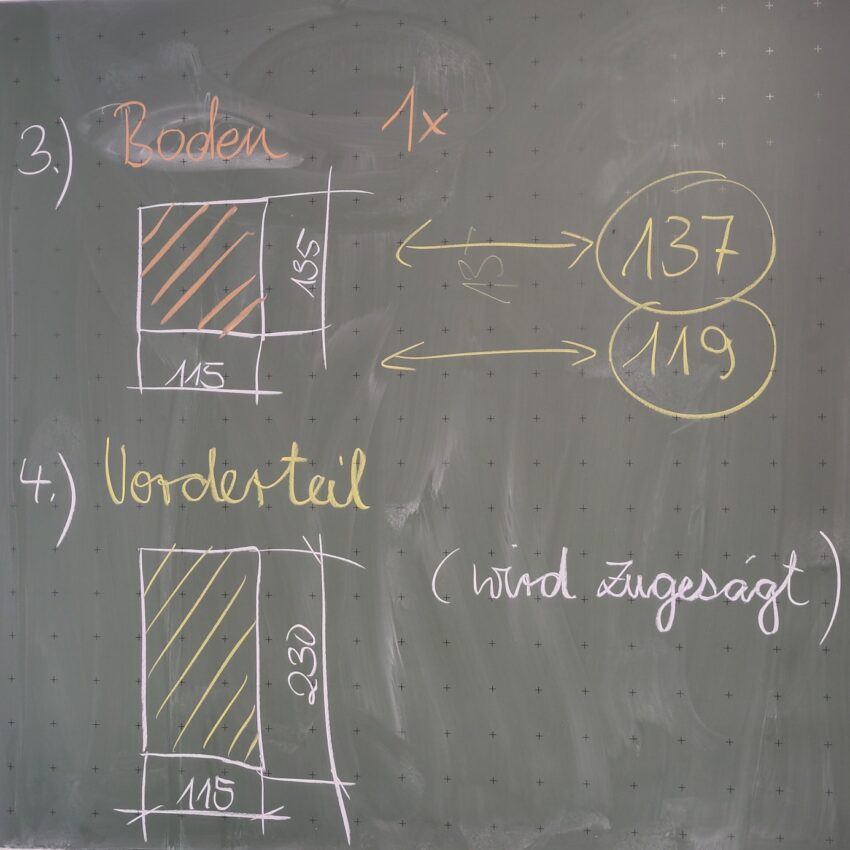 3.) Boden 1x
135
137
115
119
4.) Vorderteil
(wird zugesägt)
230
115